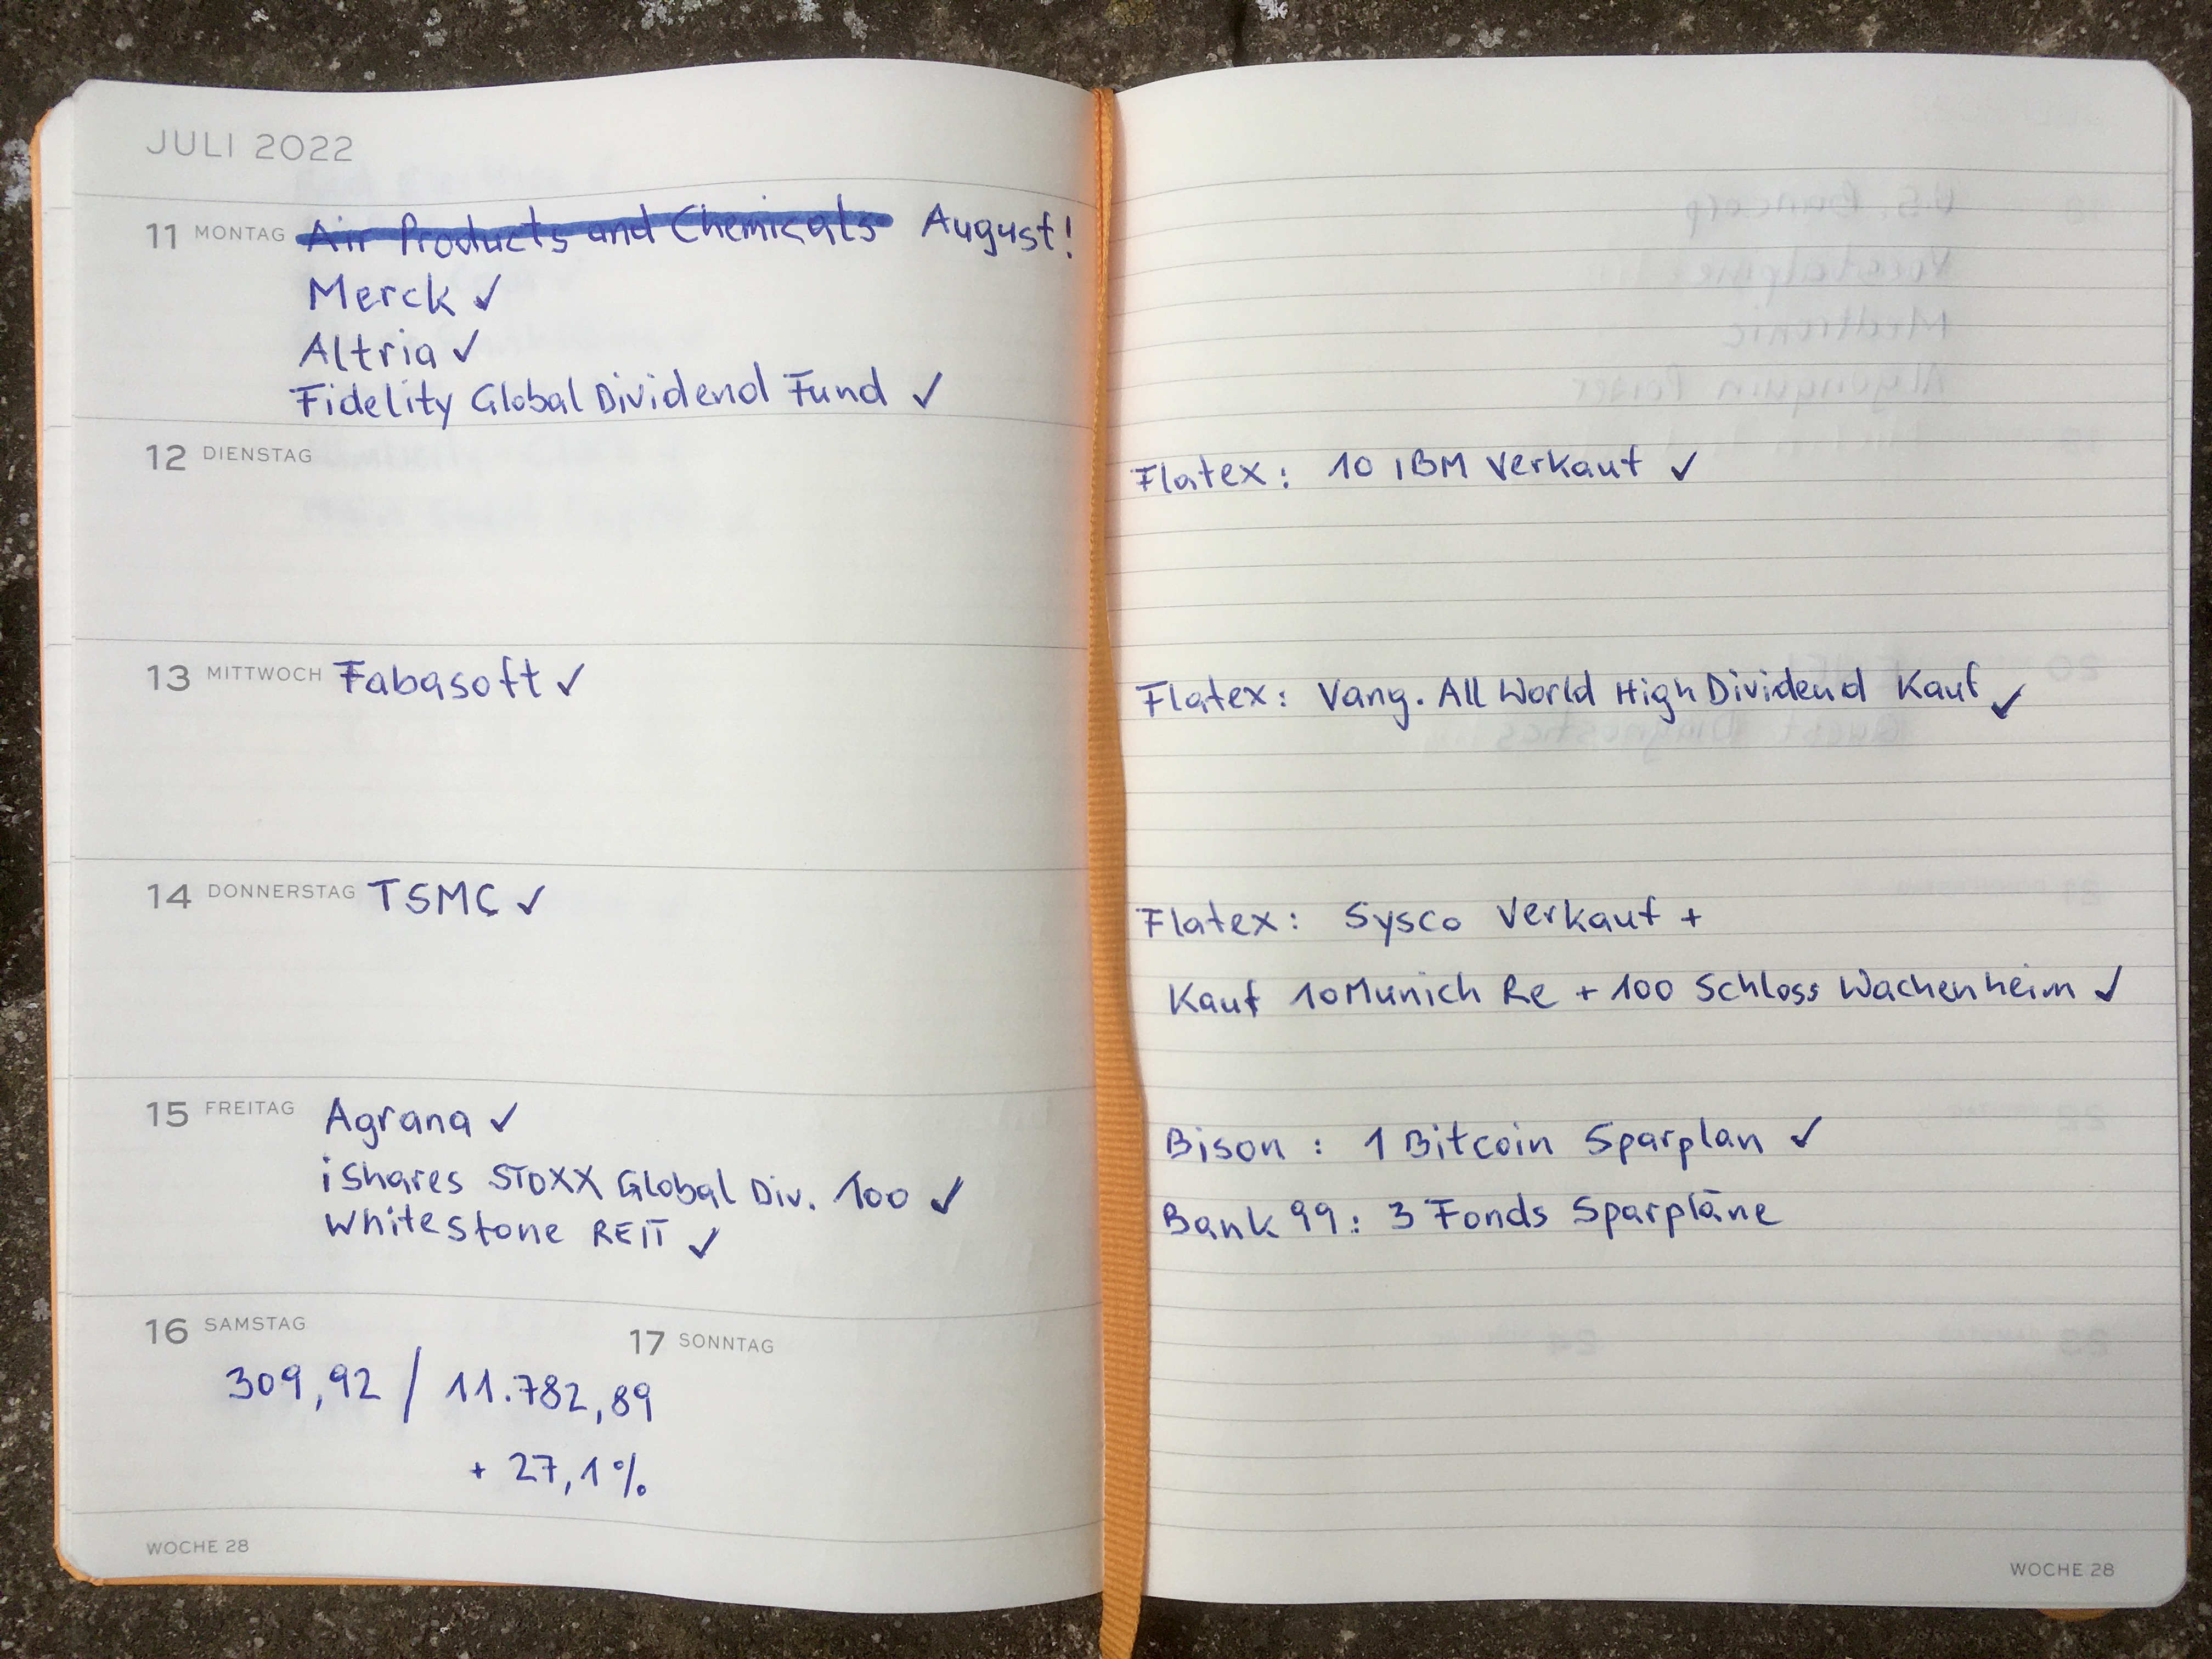 JULI 2022
11 MONTAG Air Products and Chemicals August!
Merck ✓
Altria ✓
Fidelity Global Dividend Fund ✓
12 DIENSTAG
13 MITTWOCH Fabasoft ✓
14 DONNERSTAG TSMC ✓
15 FREITAG Agrana ✓
iShares STOXX Global Div. 100 ✓
Whitestone REIT ✓
16 SAMSTAG 17 SONNTAG
309,92 / 11.782,89
+ 27,1%
WOCHE 28
Flatex: 10 IBM Verkauf ✓
Flatex: Vang. All World High Dividend Kauf ✓
Flatex: Sysco Verkauf +
Kauf 10 Munich Re + 100 Schloss Wachenheim ✓
Bison : 1 Bitcoin Sparplan ✓
Bank 99: 3 Fonds Sparpläne
WOCHE 28